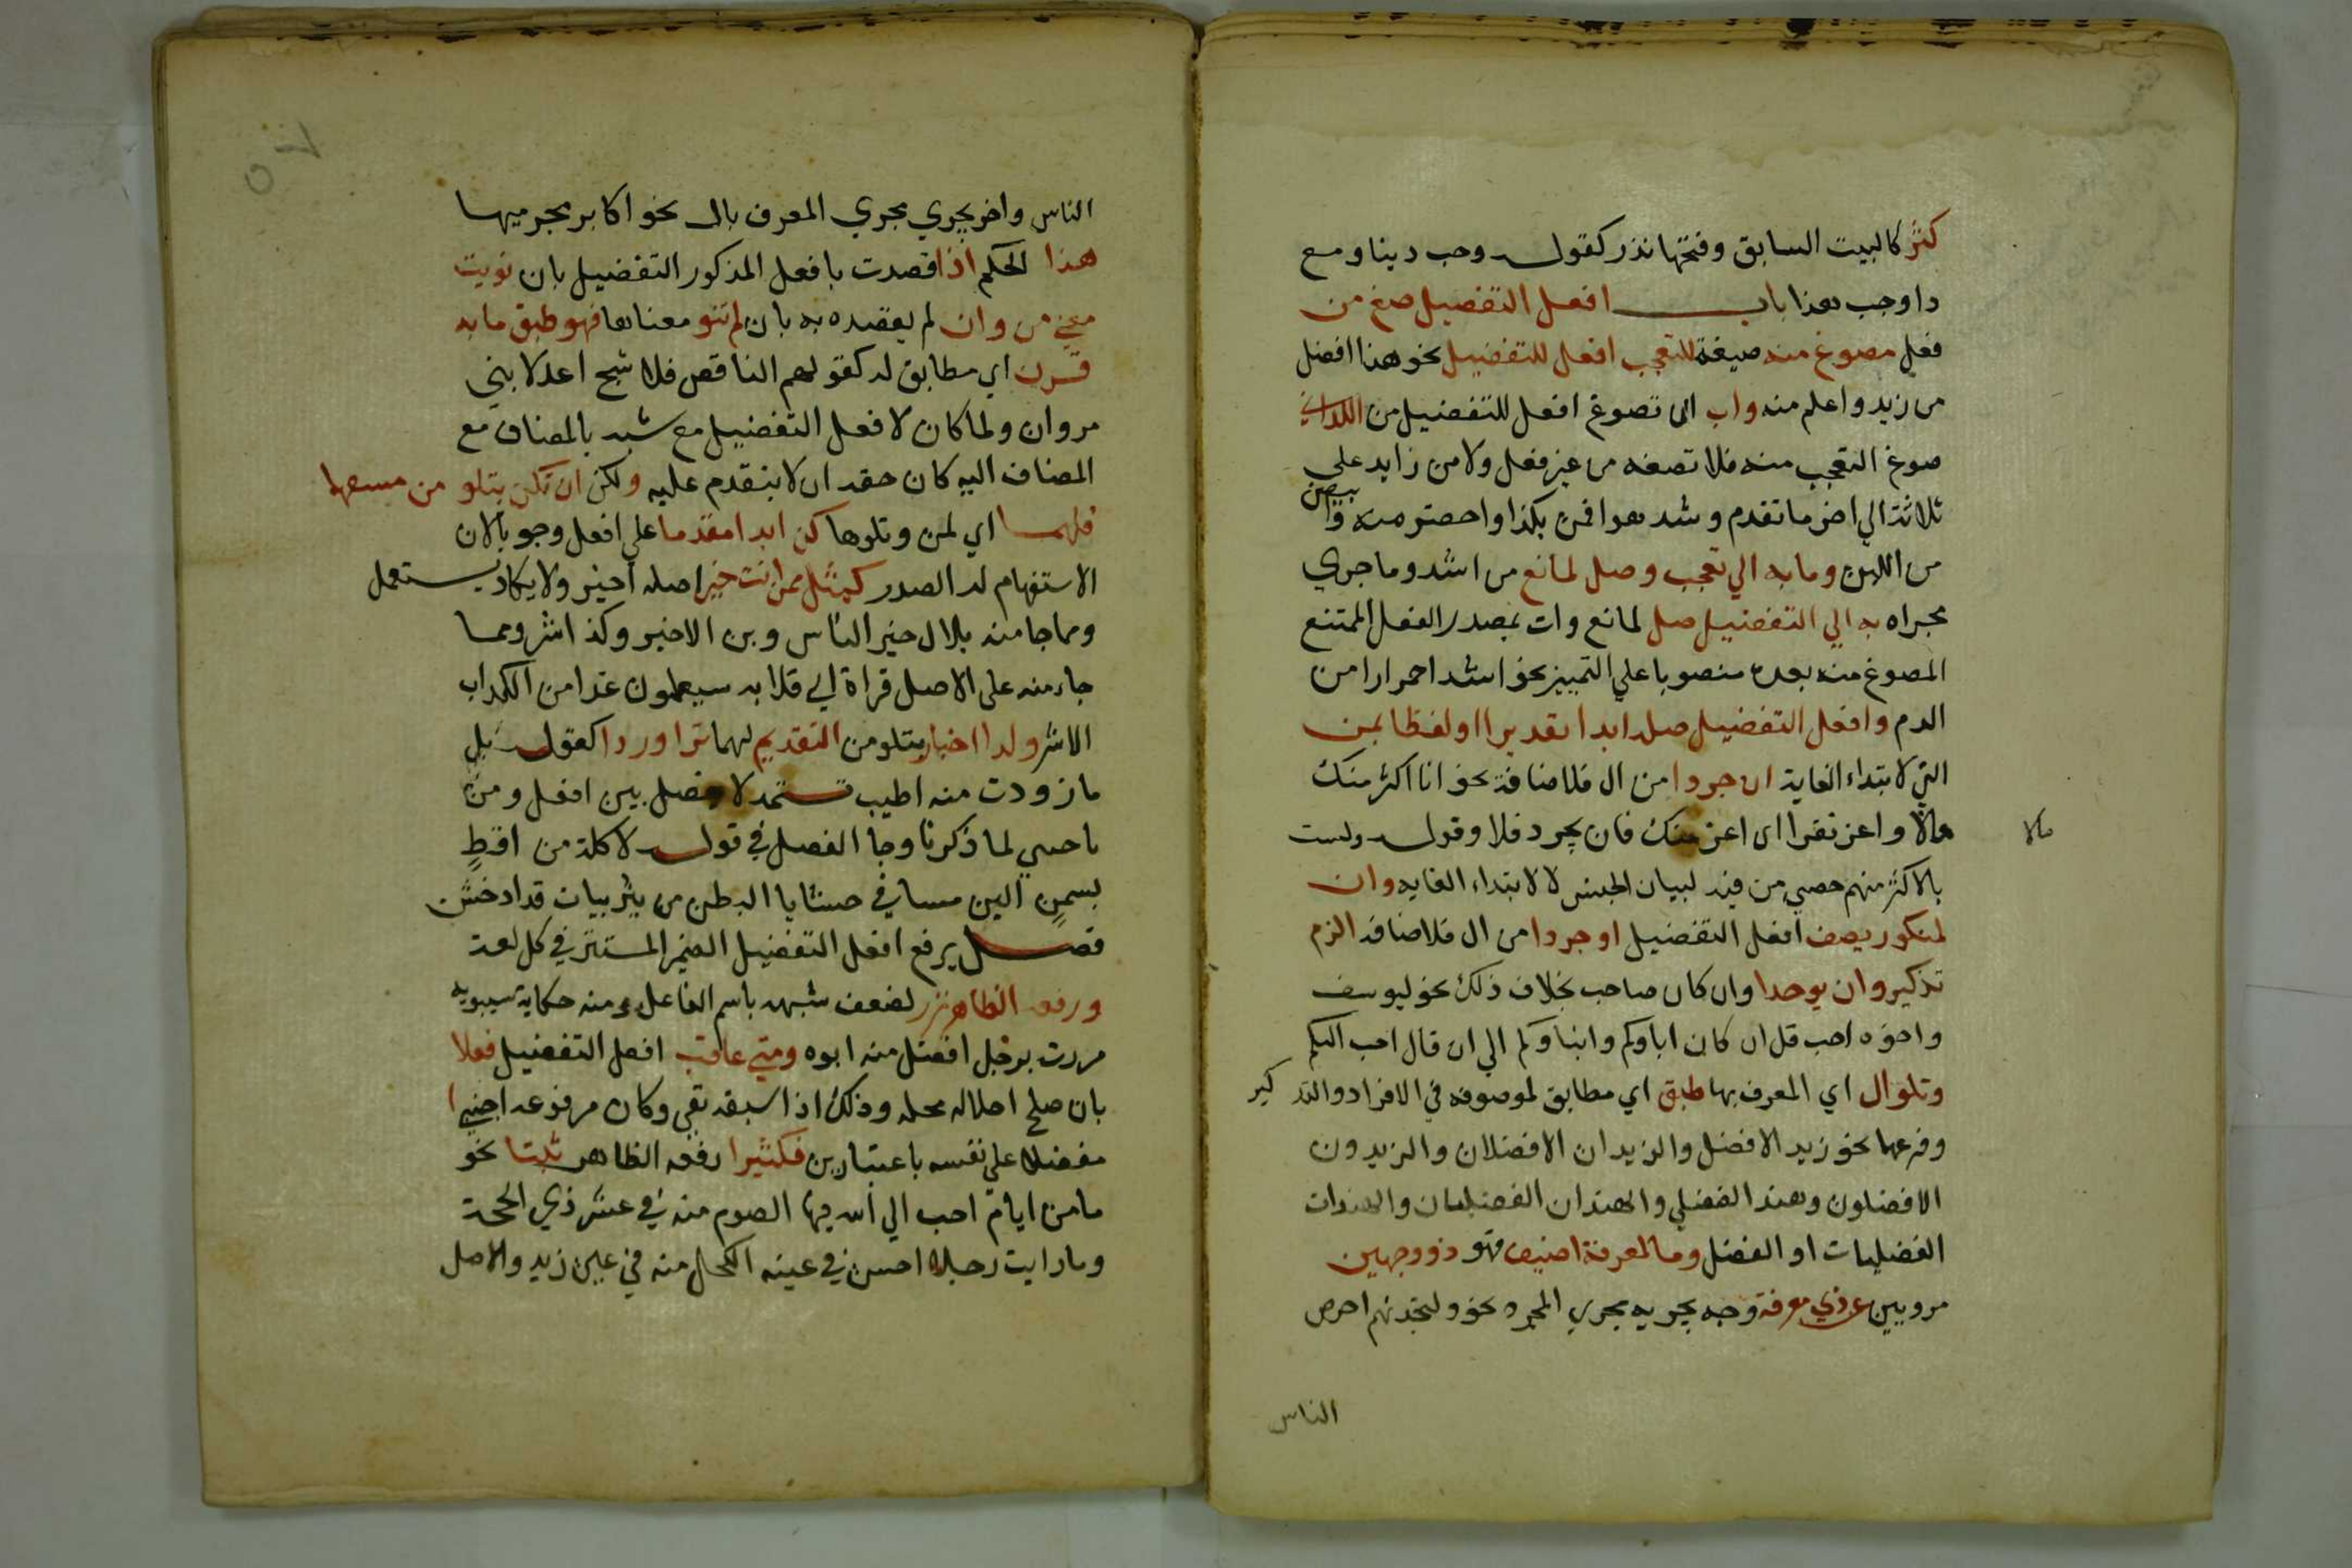 كثر كالبيت السابق وفتحها نذر كقوله وحب دينا ومع
دا وجب هذا باب افعل التفضيل صغ من
فعل مصوغ منه صيغة للتعجب افعل للتفضيل نحو هذا افضل
من زيد واعلم منه واب اى تصوغ افعل للتفضيل من اللذابي
صوغ التعجب منه فلا تصغه من غير فعل ولا من زايد على
ثلاثة الي اخر ما تقدم وشد هو اقمن بكذا واحصر منه وابيض
من اللبن وما به الي تعجب وصل لمانع من اشد وما جري
مجراه به الي التفضيل صل لمانع وات بمصدر الفعل الممتنع
المصوغ منه بعده منصوبا علي التمييز نحو اشد احمرارا من
الدم وافعل التفضيل صله ابدا تقديرا اولفظا بمن
التي لابتداء الغاية ان جردا من ال فلاضافة نحو انا اكثر منك
مالا واعز نفرا اى اعز منك فان يجرد فلا وقوله ولست
مالا
بالاكثر منهم حصي من فيه لبيان الجنس لا لابتداء الغاية وان
لمنكور يضف افعل التفضيل او جردا من ال فلاضافة الزم
تذكير وان يوحدا وان كان صاحب بخلاف ذلك نحو ليوسف
واخوه احب قل ان كان اباوكم وابناوكم الي ان قال احب اليكم
وتلوال اي المعرف بها طبق اي مطابق لموصوفه في الافراد والتذ كير
وفرعها نحو زيد الافضل والزيدان الافضلان والزيدون
الافضلون وهند الفضلي والهندان الفضليان والهندات
الفضليات او الفضل وما لمعرفة اضيف فهو ذو وجهين
مرويين عن ذي معرفة وجه يجريه مجري المجرد نحو ولتجدنهم احرص
الناس
الناس واخر يجري مجري المعرف بال نحو اكابر مجرميها
هذا الحكم اذا قصدت بافعل المذكور التفضيل بان نويت
معني من وان لم يقصده به بان لم تنو معناها فهو طبق ما به
قرن اي مطابق له كقولهم الناقص فلا شج اعدلا بني
مروان ولما كان لافعل التفضيل مع شبه بالمضاف مع
المضاف اليه كان حقه ان لا يتقدم عليه ولكن ان تكن بتلو من مستفهما
فلهما اي لمن وتلوها كن ابدا مقدما علي افعل وجوبا لان
الاستفهام له الصدر كمثل ممن انت خير اصله اخير ولا يكاد يستعمل
ومما جا منه بلال خير الناس وبن الاخير وكذا اشر ومما
جاء منه على الاصل قراة ابي قلابه سيعلمون غدا من الكذاب
الاشر ولدا اخبار بتلو من التقديم لهما نزرا وردا كقوله بل
ما زودت منه اطيب تستمد لا فصل بين افعل ومن
باجنبي لما ذكرنا وجا الفصل في قوله لاكلة من اقط
بسمن الين مسا في حشايا البطن من يثربيات قداد خشن
فصل يرفع افعل التفضيل الضمير المستتر في كل لغة
ورفعه الظاهر نزر لضعف شبهه باسم الفاعل ومنه حكاية سيبويه
مررت برجل افضل منه ابوه ومتي عاقب افعل التفضيل فعلا
بان صلح احلاله محله وذلك اذا سبقه نفي وكان مرفوعه اجنبيا
مفضلا علي نفسه باعتبارين فكثيرا رفعه الظاهر ثبتا نحو
ما من ايام احب الي الله فيها الصوم منه في عشر ذي الحجة
وما رايت رجلا احسن في عينه الكحل منه في عين زيد والاصل